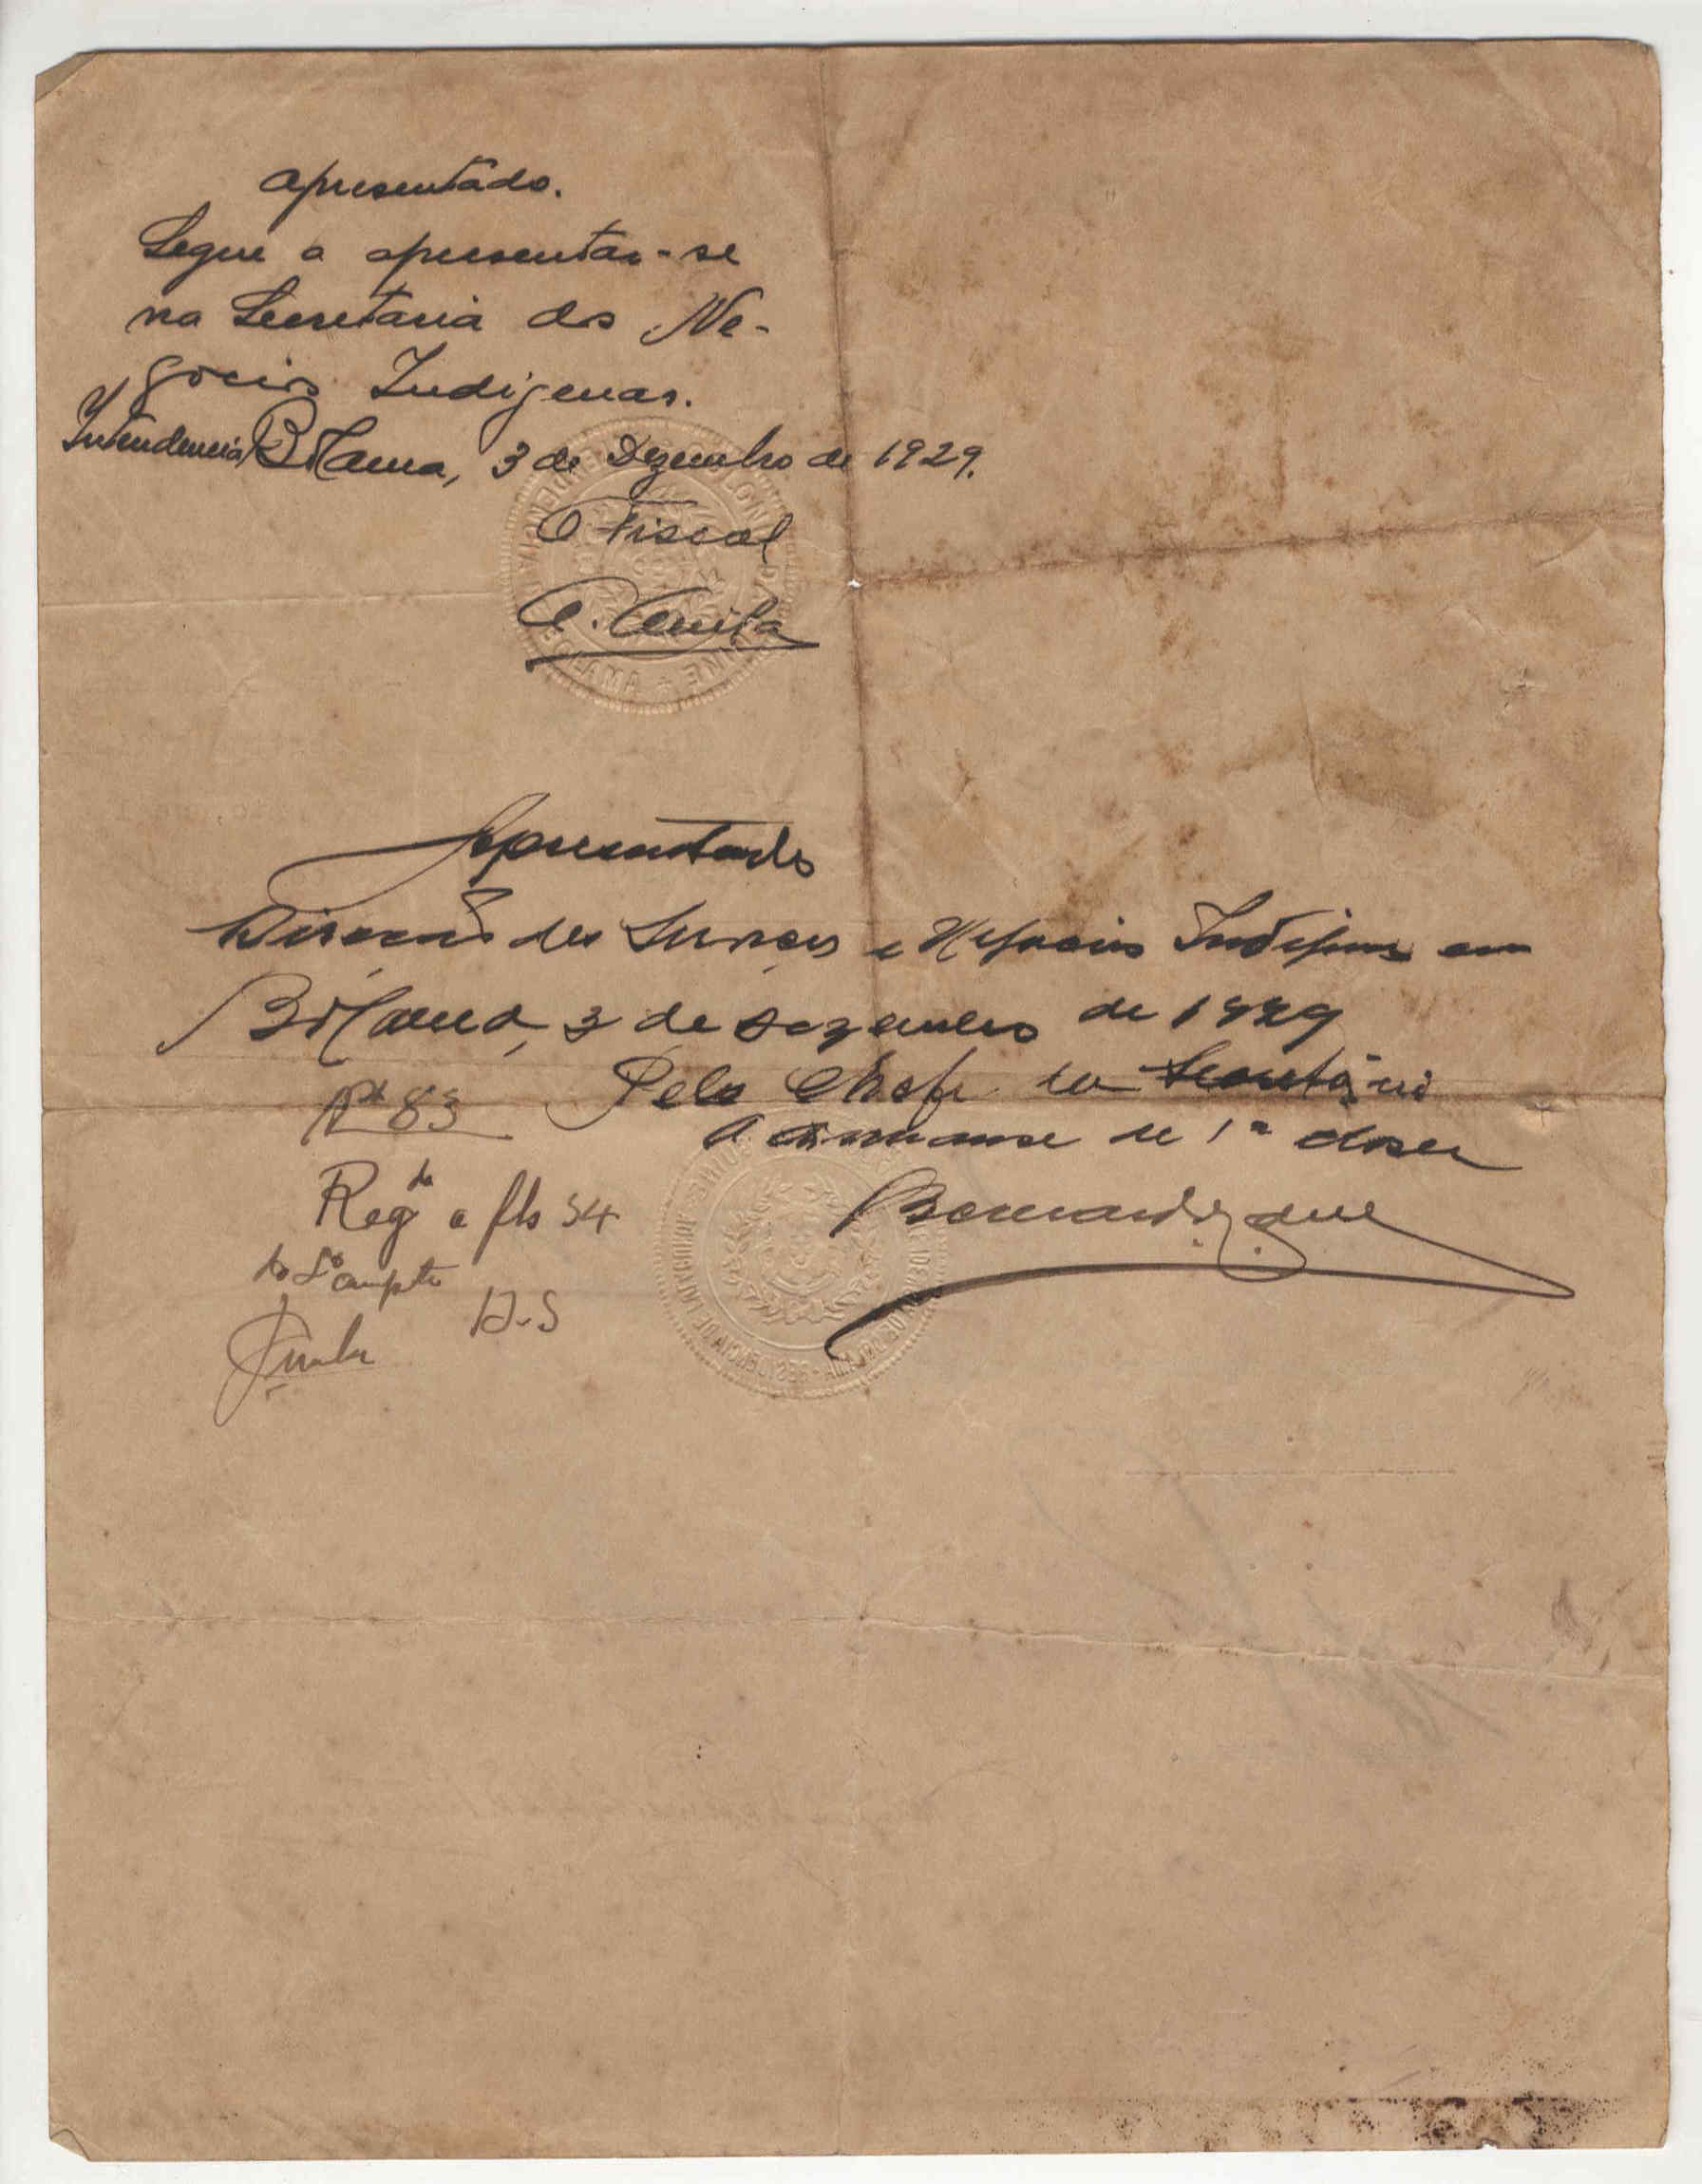 apresentado.
Segue a apresentar-se
na Secretaria dos Ne-
gocios Indigenas.
Intendencia, Bolama, 3 de Dezembro de 1929.
O Fiscal
Apresentado
Direcção dos Serviços e Negocios Indigenas em
Bolama, 3 de Dezembro de 1929
Pelo Chefe da Secretaria
O Amanuense de 1ª classe
Nº 83
Regdo a fls 34
BOLAMA